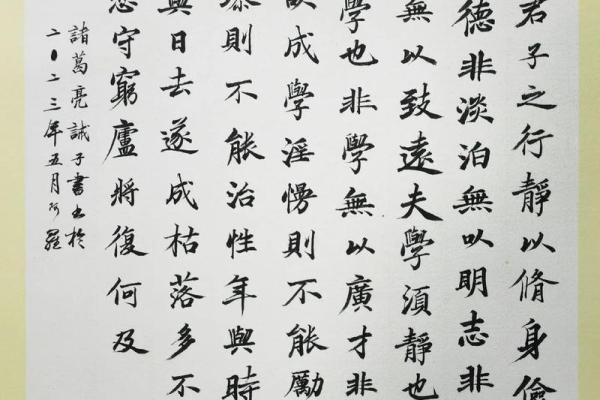 君子之行靜以脩身儉
德非淡泊無以明志非
無以致遠夫學須靜也
學也非學無以廣才非
以成學淫慢則不能勵
躁則不能治性年與時
與日去遂成枯落多不
悲守窮廬將復何及
諸葛亮誡子書於
二〇二三年五月阿羅